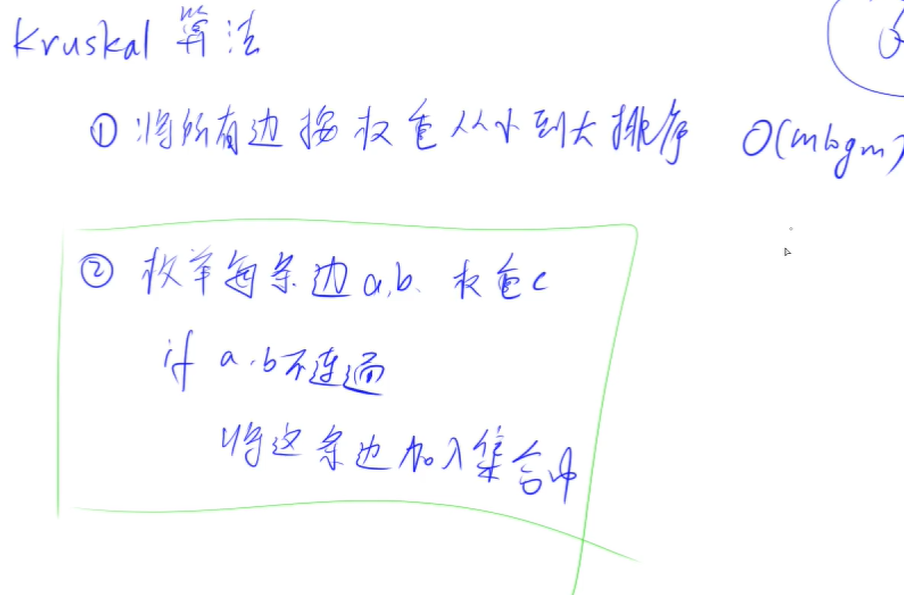 Kruskal 算法
① 将所有边按权重从小到大排序 O(mlogm)
② 枚举每条边a,b、权重c
if a.b不连通
将这条边加入集合中